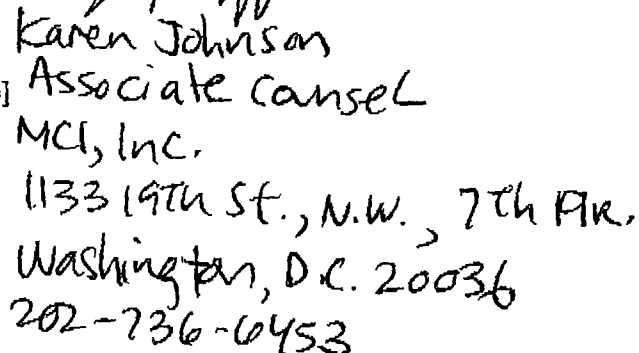 Karen Johnson
] Associate Counsel
MCI, Inc.
1133 19th St., N.W., 7th Flr.
Washington, D.C. 20036
202-736-6453